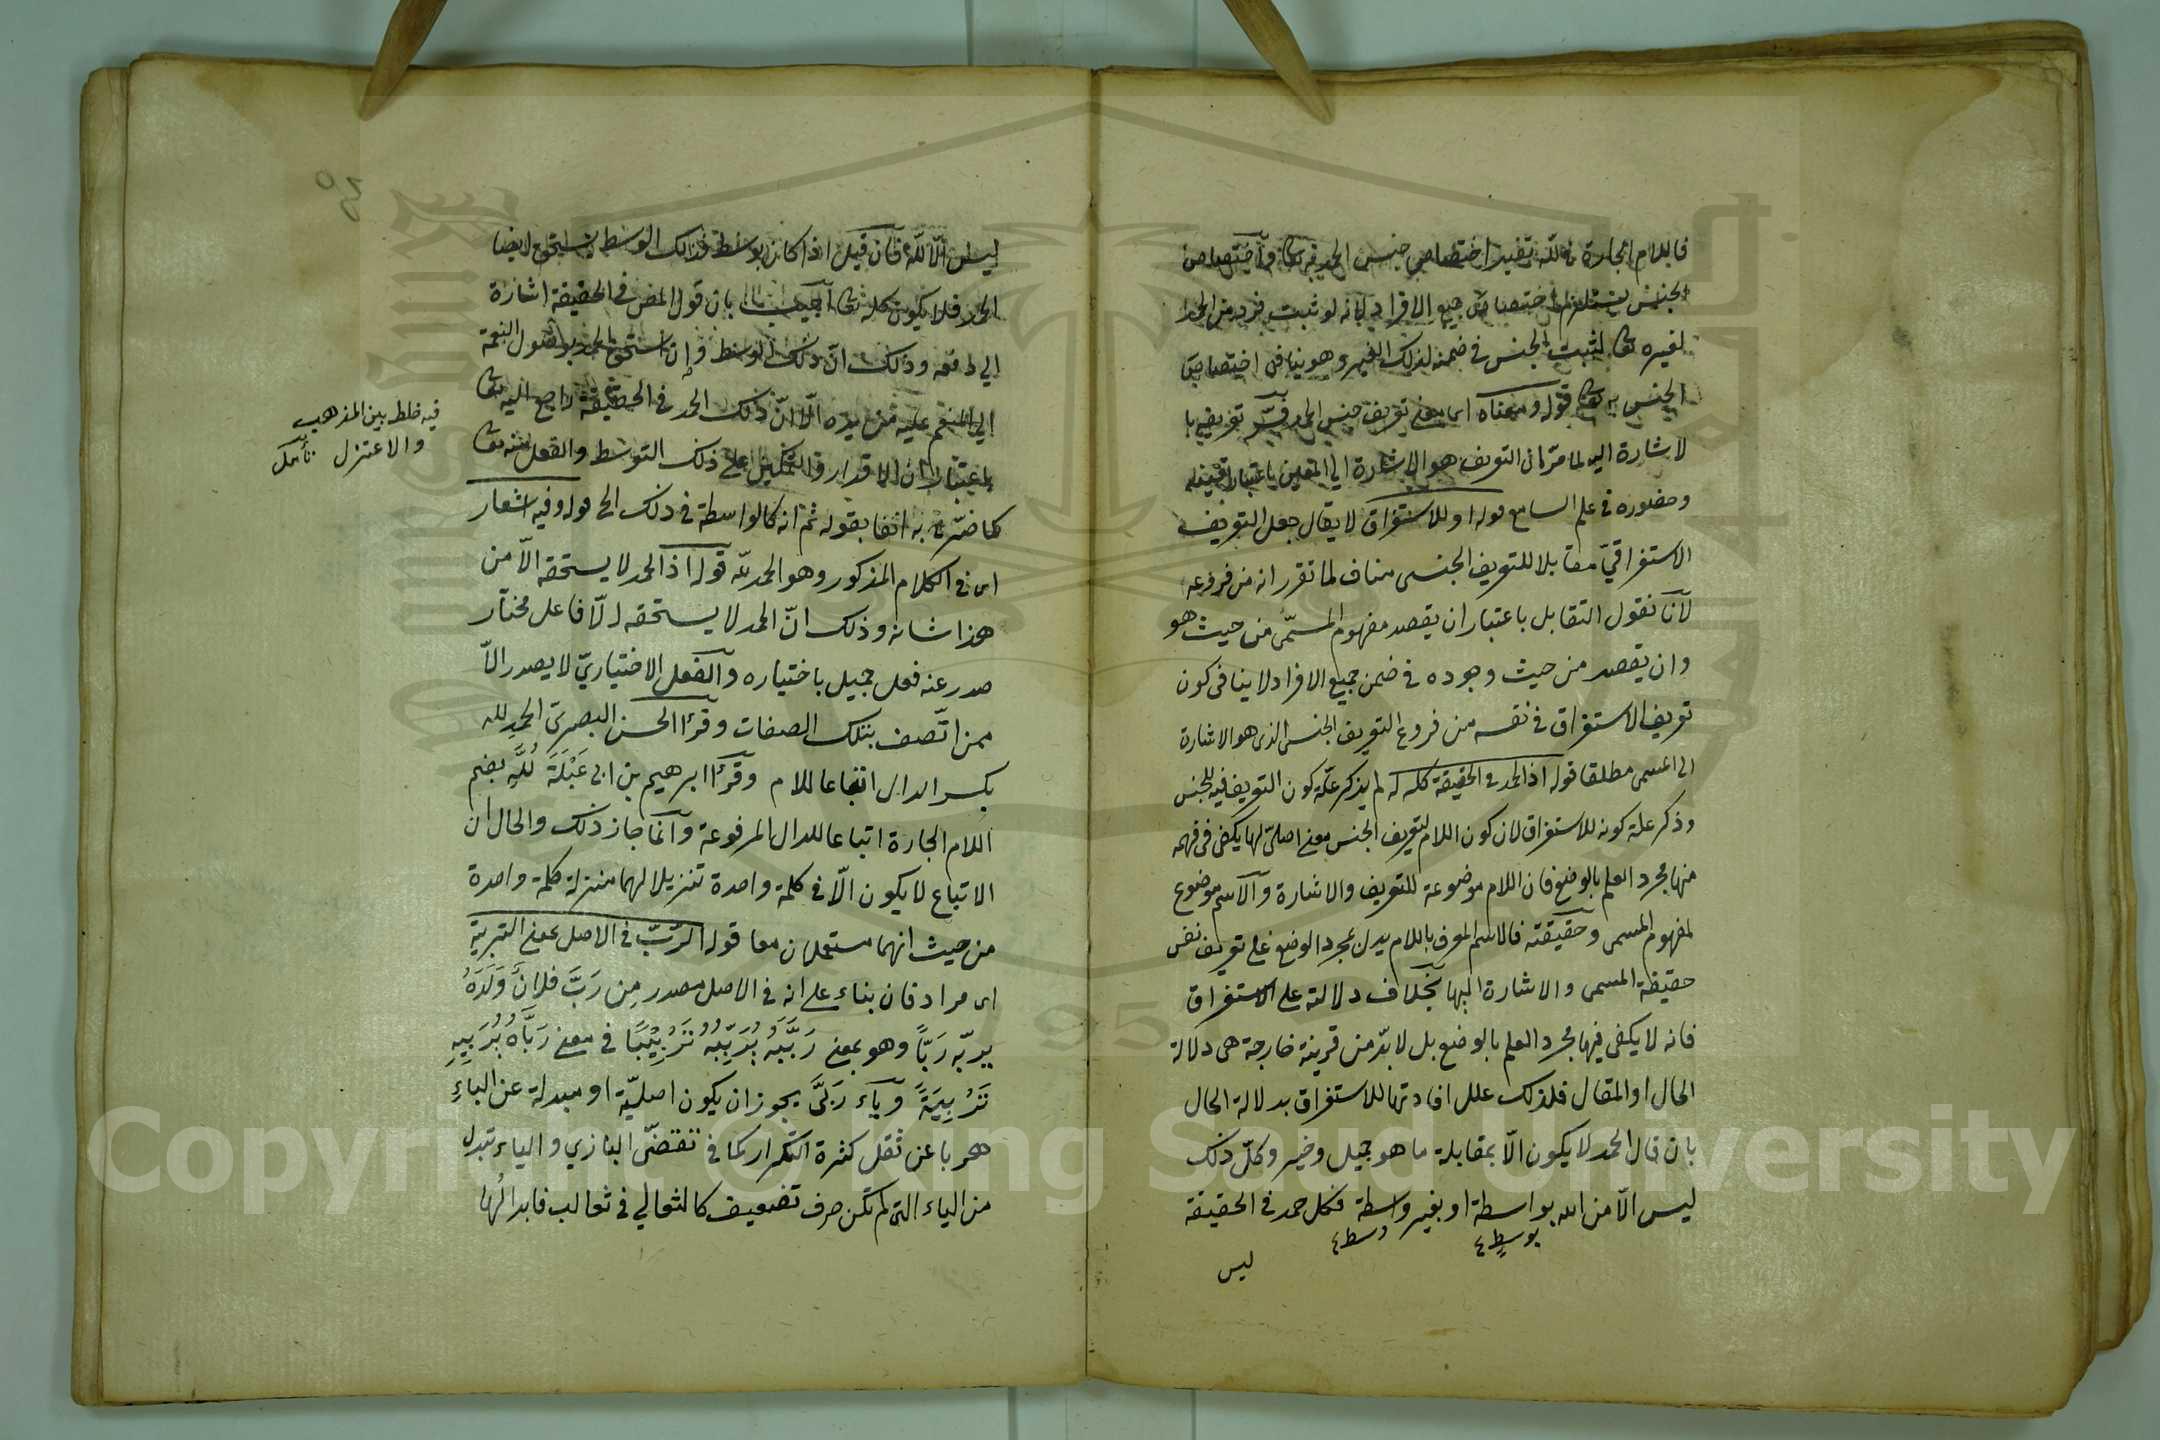 فاللام الجارة في لله تفيد اختصاص جنس الحمد به تعا واختصاص
الجنس يستلزم اختصاص جميع الافراد لانه لو ثبت فرد من الحمد
لغيره تعا لثبت الجنس في ضمنه لذلك الغير وهو ينافي اختصاص
الجنس به تعا قوله ومعناه اى معنى تعريف جنس الحمد فسّر تعريفه با
لاشارة اليه لما مرّ ان التعريف هو الاشارة الى المتعين باعتبار تعينه
وحضوره في علم السامع قوله او للاستغراق لا يقال جعل التعريف
الاستغراقيّ مقابلا للتعريف الجنسى مناف لما تقرر انه من فروعه
لانا نقول التقابل باعتبار ان يقصد مفهوم المسمّى من حيث هو
وان يقصد من حيث وجوده في ضمن جميع الافراد لا ينافى كون
تعريف الاستغراق في نفسه من فروع التعريف الجنس الذى هو الاشارة
الى المسمى مطلقا قوله اذ الحمد في الحقيقة كله له لم يذكر علّة كون التعريف فيه للجنس
وذكر علة كونه للاستغراق لان كون اللام لتعريف الجنس معنى اصلىّ لها يكفى في فهمه
منها مجرد العلم بالوضع فان اللام موضوعة للتعريف والاشارة والاسم موضوع
لمفهوم المسمى وحقيقته فالاسم المعرف باللام يدل بمجرد الوضع على تعريف نفس
حقيقة المسمى والاشارة اليها بخلاف دلالته على الاستغراق
فانه لا يكفى فيها مجرد العلم بالوضع بل لا بدّ من قرينة خارجة هى دلالة
الحال او المقال فلذلك علل افادتها للاستغراق بدلالة الحال
بان قال الحمد لا يكون الاّ بمقابلة ما هو جميل وخير وكلّ ذلك
ليس الاّ من الله بواسطة او بغير واسطة فكل حمد في الحقيقة
بوسطٍ ع وسط ع
ليس
ليس الاّ لله فان قيل اذا كان بوسط فذلك الوسط يستحق ايضا
الحمد فلا يكون كله تعا اجيب بان قول المص في الحقيقة اشارة
الى دفعه وذلك انّ ذلك الوسط وإن استحق الحمد بوصول النعمة
الى المنعم عليه من يده الاّ انّ ذلك الحمد في الحقيقة راجع اليه تعا
باعتبار ان الاقدار والتمكين على ذلك التوسط والفعل منه تعا
كما صرّح به انفا بقوله ثم انه كالواسطة في ذلك الخ قوله وفيه اشعار
اى في الكلام المذكور وهو الحمد لله قوله اذ الحمد لا يستحقه الاّ من
هذا شانه وذلك انّ الحمد لا يستحقه الاّ فاعل مختار
صدر عنه فعل جميل باختياره والفعل الاختياريّ لا يصدر الاّ
ممن اتّصف بتلك الصفات وقرأ الحسن البصرىّ الحمدِ لله
بكسر الدال اتباعا للام وقرأ ابرهيم بن ابى عَبْلَةَ لُلّهِ بضم
اللام الجارة اتباعا للدال المرفوعة وانما جاز ذلك والحال ان
الاتباع لا يكون الاّ في كلمة واحدة تنزيلا لهما منزلة كلمة واحدة
من حيث انهما مستعملان معا قوله الرّبّ في الاصل بمعنى التربية
اى مرادفان بناء على انه في الاصل مصدر مِن رَبَّ فلانٌ وَلَدَهُ
يربّه رَبّاً وهو بمعنى رَبَّبَهُ يُرَبِّبُهُ تَرْبِيْبًا في معنى رَبَّاهُ يُرَبِيهِ
تَرْبِيَةً وياء رَبَّى يجوز ان يكون اصليّة او مبدلة عن الباءِ
هربا عن ثقل كثرة التكرار كما في تقضّى البازي والياء تبدل
من الياء التى لم تكن حرف تضعيف كالثعالي في ثعالب فابدالها
فيه خلط بين المذهب
والاعتزل تأمل